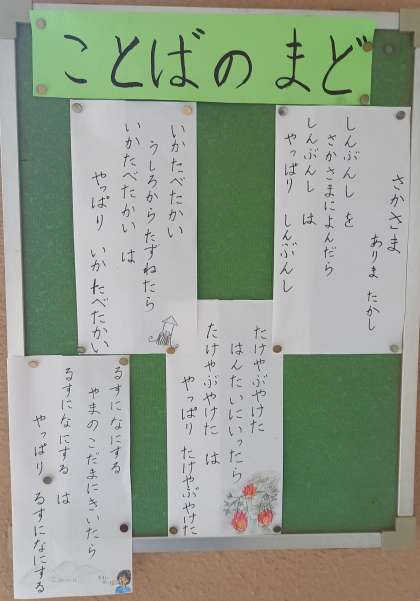 ことばのまど
さかさま
ありま たかし
しんぶんし を
さかさまによんだら
しんぶんし は
やっぱり しんぶんし
いかたべたかい
うしろからたずねたら
いかたべたかい は
やっぱり いかたべたかい
たけやぶやけた
はんたいにいったら
たけやぶやけた は
やっぱり たけやぶやけた
るすになにする
やまのこだまにきいたら
るすになにする は
やっぱり るすになにする